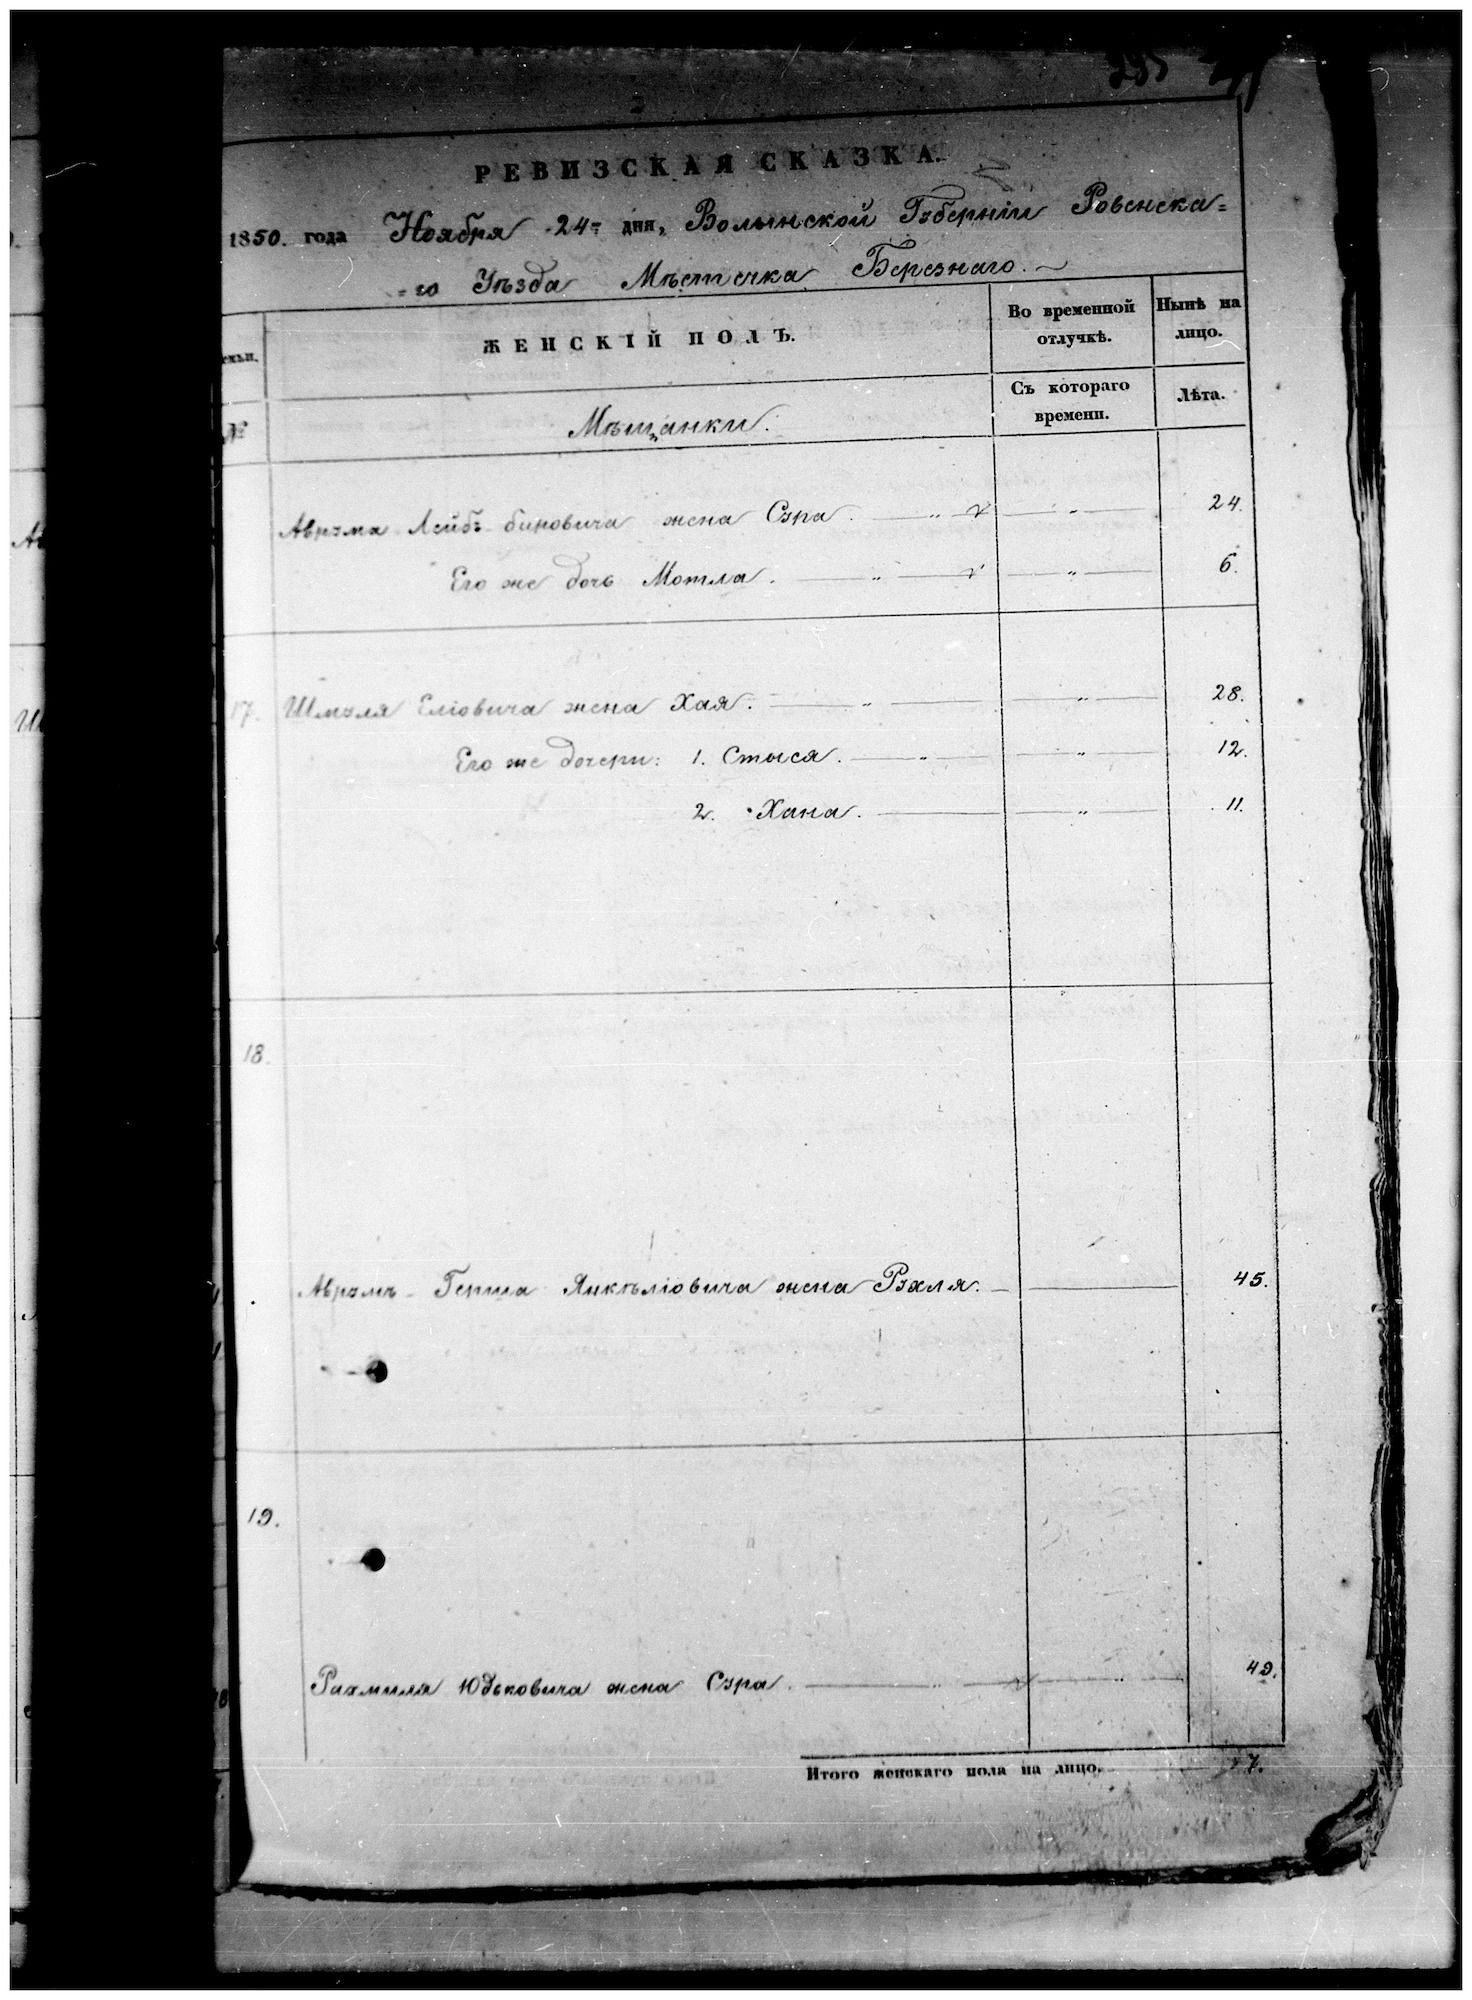 295
РЕВИЗСКАЯ СКАЗКА.
1850. года Ноября 24 дня, Волынской Губерніи Ровенска=
=го Уѣзда Мѣстечка Березнаго.
ЖЕНСКІЙ ПОЛЪ.
Во временной отлучкѣ.
Нынѣ на лицо.
№
Мѣщанки.
Съ котораго времени.
Лѣта.
Аврума Лейбъ Биновича жена Сура. 24.
Его же дочь Мотля. 6.
17. Шмуля Еліовича жена Хая. 28.
Его же дочери: 1. Стыся. 12.
2. Хана. 11.
18.
Аврумъ-Герша Янкѣліовича жена Рухля. 45.
19.
Рахмиля Юдьковича жена Сура. 49.
Итого женскаго пола на лицо. 7.